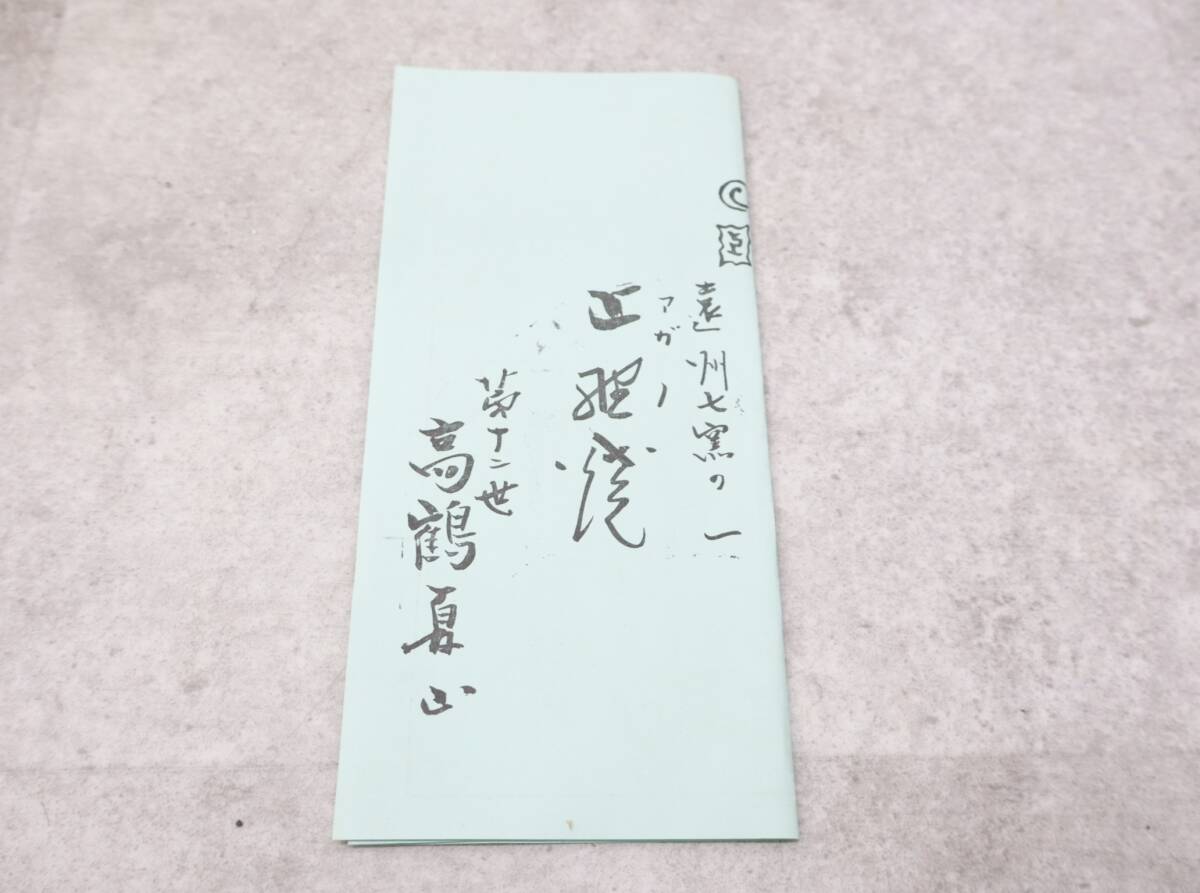 遠州七窯の一
アガノ
上野焼
第十二世
高鶴夏山